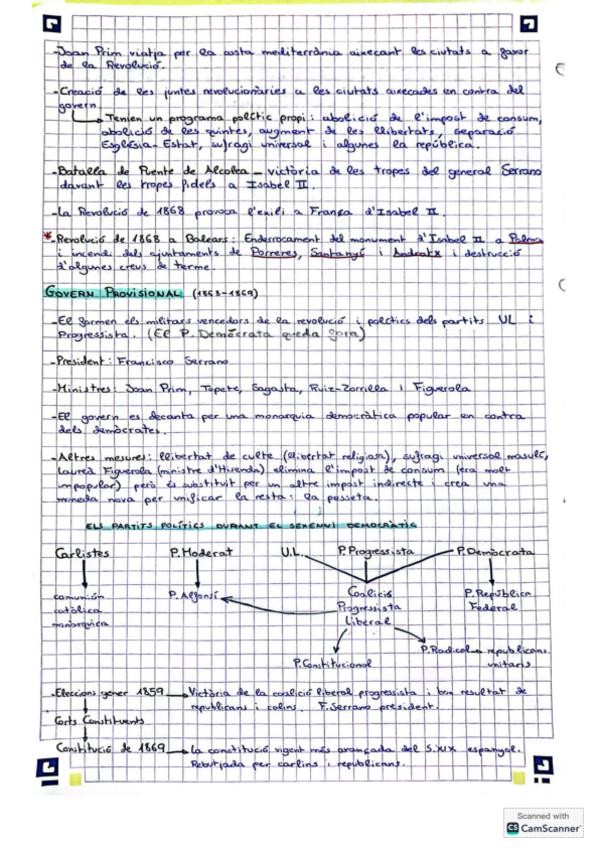 -Joan Prim viatja per la costa mediterrània aixecant les ciutats a favor
de la Revolució.
-Creació de les juntes revolucionàries a les ciutats aixecades en contra del
govern.
Tenien un programa polític propi: abolició de l'impost de consum,
abolició de les quintes, augment de les llibertats, separació
Església-Estat, sufragi universal i algunes la república.
-Batalla de Puente de Alcolea - victòria de les tropes del general Serrano
davant les tropes fidels a Isabel II.
-La Revolució de 1868 provoca l'exili a França d'Isabel II.
*-Revolució de 1868 a Balears: Enderrocament del monument d'Isabel II a Palma
i incendi dels ajuntaments de Porreres, Santanyí i Andratx i destrucció
d'algunes creus de terme.
GOVERN PROVISIONAL (1868-1869)
-El formen els militars vencedors de la revolució i polítics dels partits UL i
Progressista. (El P. Demòcrata queda fora)
-President: Francisco Serrano
-Ministres: Joan Prim, Topete, Sagasta, Ruiz-Zorrilla i Figuerola
-El govern es decanta per una monarquia democràtica popular en contra
dels demòcrates.
-Altres mesures: llibertat de culte (llibertat religiosa), sufragi universal masculí,
Laureà Figuerola (ministre d'Hisenda) elimina l'impost de consum (era molt
impopular) però és substituït per un altre impost indirecte i crea una
moneda nova per unificar la resta: la pesseta.
ELS PARTITS POLÍTICS DURANT EL SEXENNI DEMOCRÀTIC
Carlistes P. Moderat U.L. P. Progressista P. Demòcrata
comunión
católica
monárquica
P. Alfonsí
Coalició
Progressista
Liberal
P. República
Federal
P. Constitucional
P. Radical republicans
unitaris
-Eleccions gener 1859 Victòria de la coalició liberal progressista i bon resultat de
republicans i carlins. F. Serrano president.
Corts Constituents
Constitució de 1869 la constitució vigent més avançada del S.XIX espanyol.
Rebutjada per carlins i republicans.
Scanned with
CS CamScanner